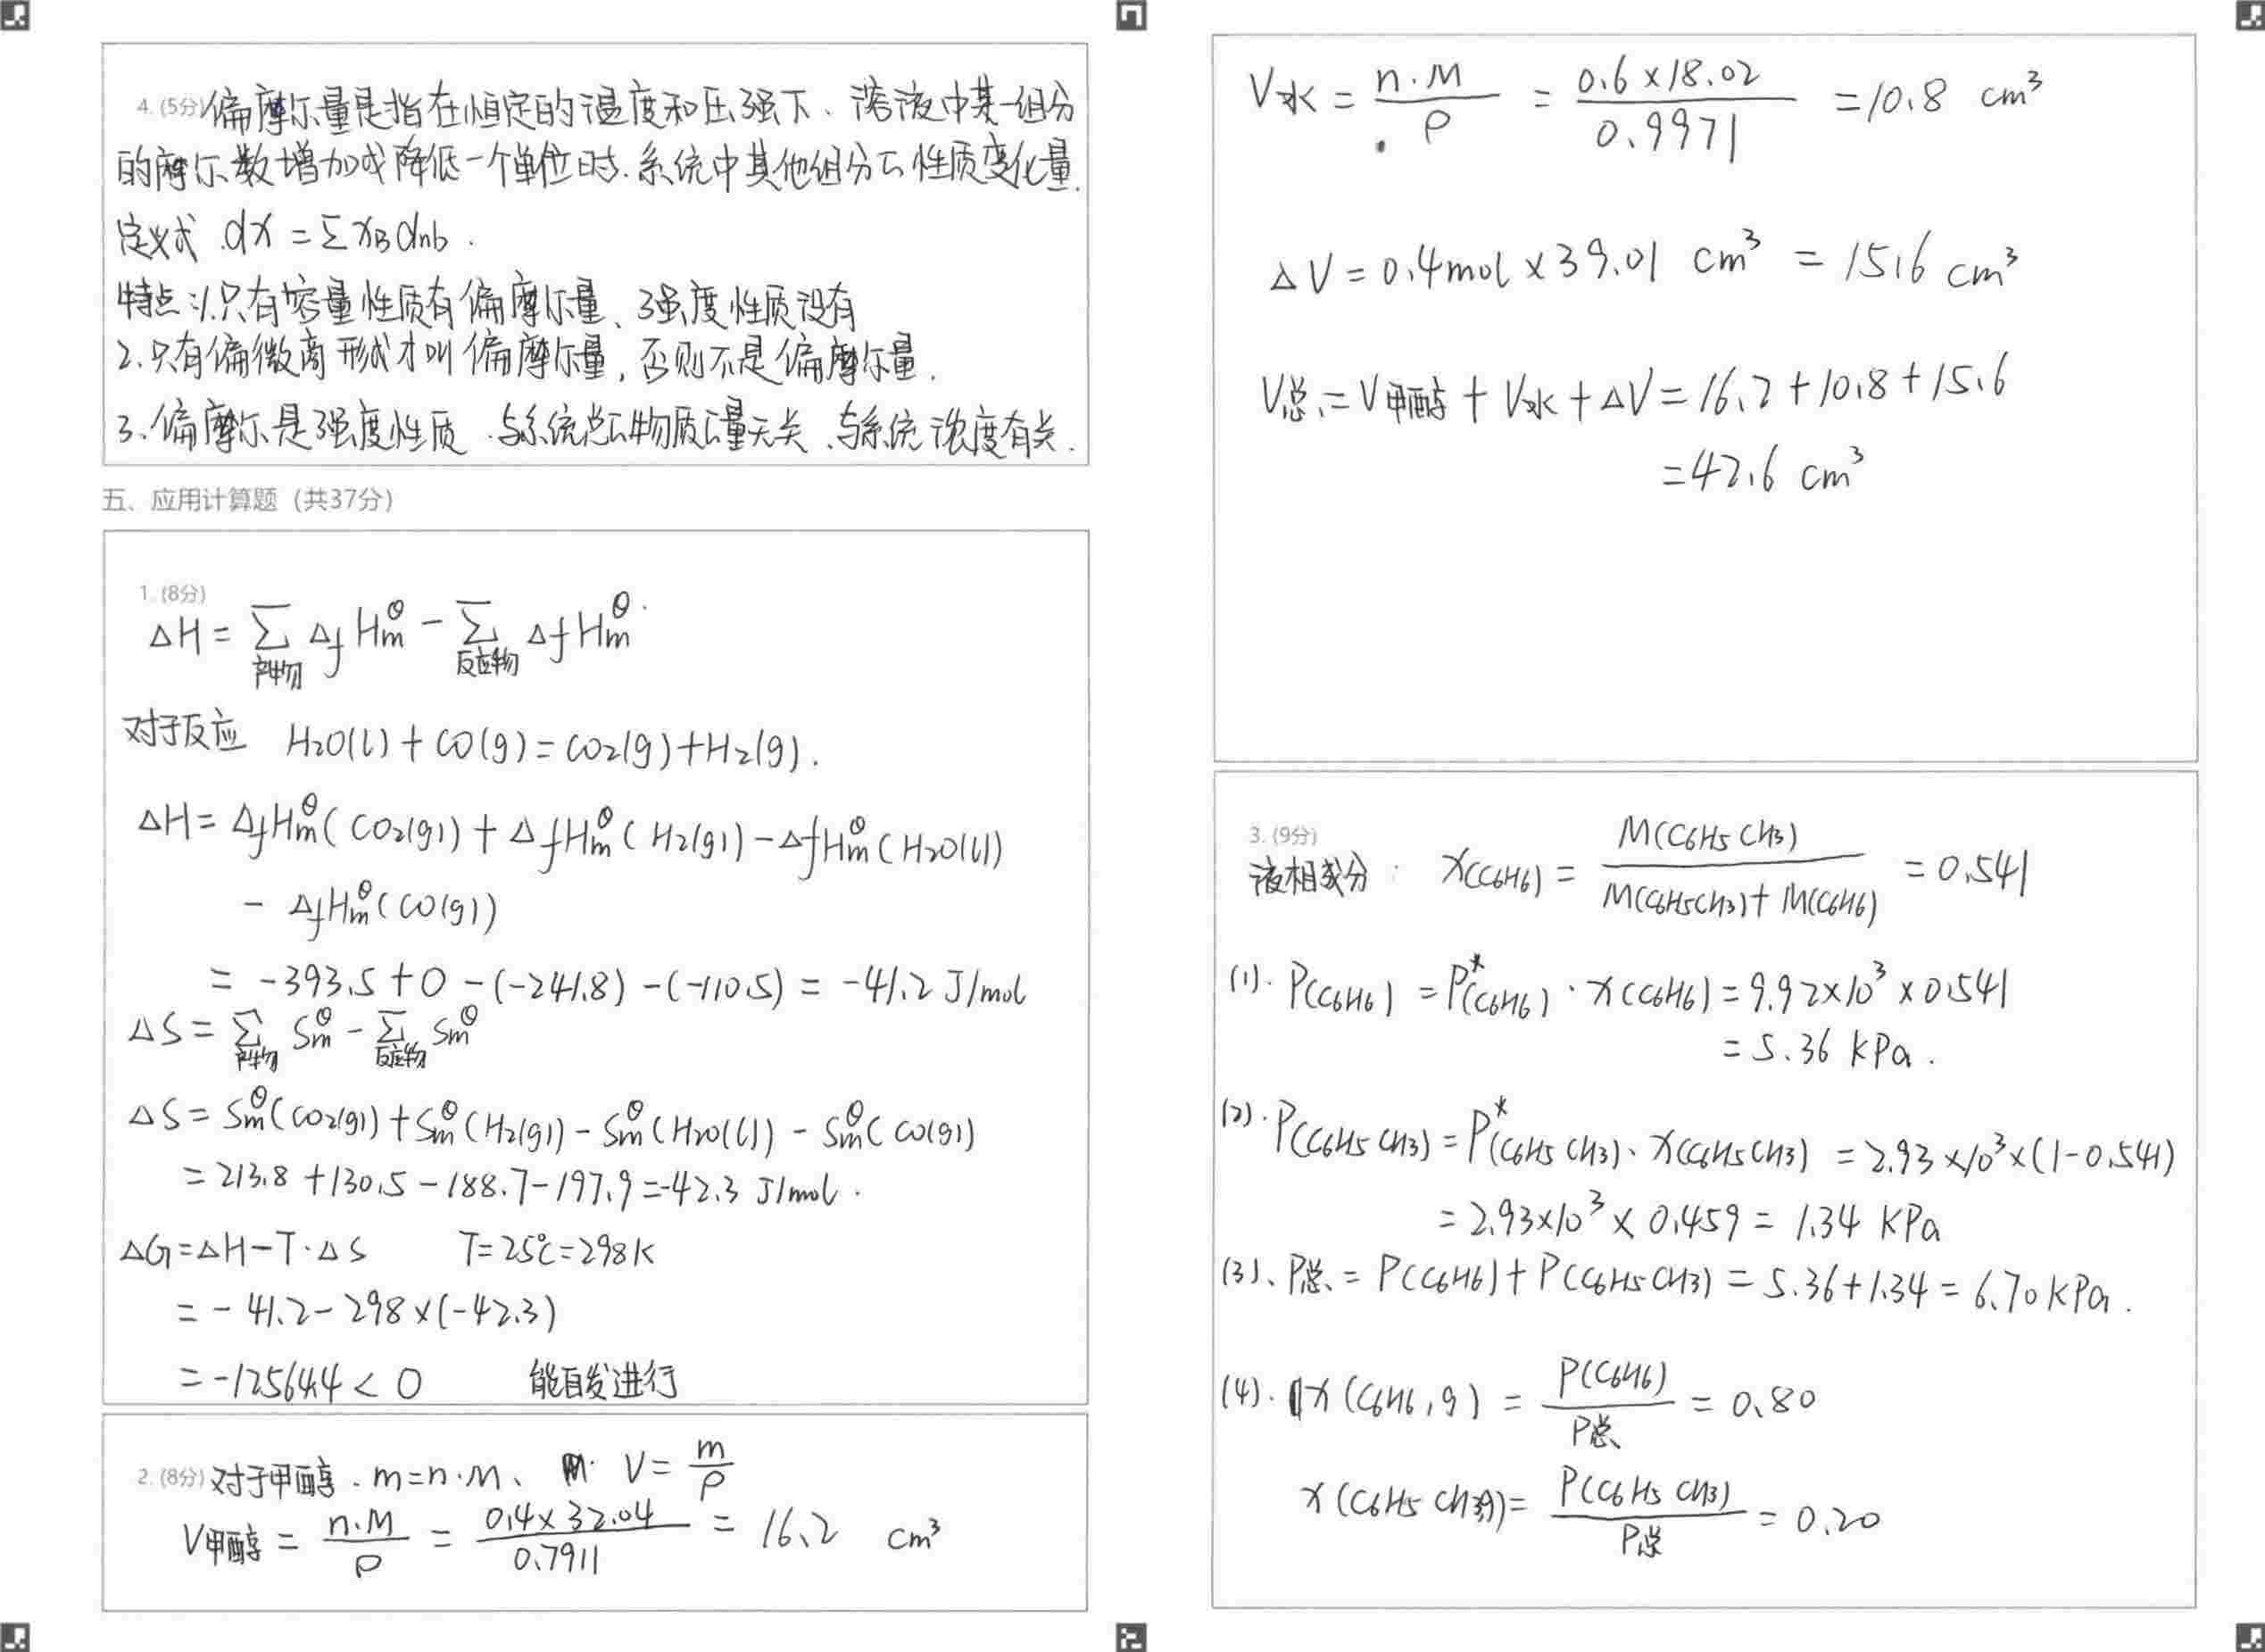 4. (5分) 偏摩尔量是指在恒定的温度和压强下、溶液中某一组分
的摩尔数增加或降低一个单位时.系统中其他组分的性质变化量.
定义式 .dX = ΣXB dnb .
特点:1.只有容量性质有偏摩尔量、强度性质没有
2.只有偏微商形式才叫偏摩尔量,否则不是偏摩尔量.
3.偏摩尔是强度性质.与系统总的物质的量无关、与系统浓度有关.
五、应用计算题 (共37分)
1. (8分)
ΔH = Σ产物 ΔfHm^θ - Σ反应物 ΔfHm^θ
对于反应 H2O(l) + CO(g) = CO2(g) + H2(g).
ΔH = ΔfHm^θ(CO2(g)) + ΔfHm^θ(H2(g)) - ΔfHm^θ(H2O(l))
- ΔfHm^θ(CO(g))
= -393.5 + 0 - (-241.8) - (-110.5) = -41.2 J/mol
ΔS = Σ产物 Sm^θ - Σ反应物 Sm^θ
ΔS = Sm^θ(CO2(g)) + Sm^θ(H2(g)) - Sm^θ(H2O(l)) - Sm^θ(CO(g))
= 213.8 + 130.5 - 188.7 - 197.9 = -42.3 J/mol .
ΔG = ΔH - T·ΔS T = 25℃ = 298K
= - 41.2 - 298 × (-42.3)
= -12564.4 < 0 能自发进行
2. (8分) 对于甲醇. m = n·M、 V = m/ρ
V甲醇 = n·M/ρ = 0.4×32.04/0.7911 = 16.2 cm³
V水 = n·M/ρ = 0.6×18.02/0.9971 = 10.8 cm³
ΔV = 0.4mol × 39.01 cm³ = 15.6 cm³
V总 = V甲醇 + V水 + ΔV = 16.2 + 10.8 + 15.6
= 42.6 cm³
3. (9分)
液相成分: x(C6H6) = M(C6H5CH3)/(M(C6H5CH3) + M(C6H6)) = 0.541
(1). P(C6H6) = P*(C6H6) · x(C6H6) = 9.92×10³ × 0.541
= 5.36 kPa .
(2). P(C6H5CH3) = P*(C6H5CH3)、x(C6H5CH3) = 2.93×10³×(1-0.541)
= 2.93×10³ × 0.459 = 1.34 KPa
(3)、P总 = P(C6H6) + P(C6H5CH3) = 5.36 + 1.34 = 6.70 kPa .
(4). x(C6H6,g) = P(C6H6)/P总 = 0.80
x(C6H5CH3,g) = P(C6H5CH3)/P总 = 0.20